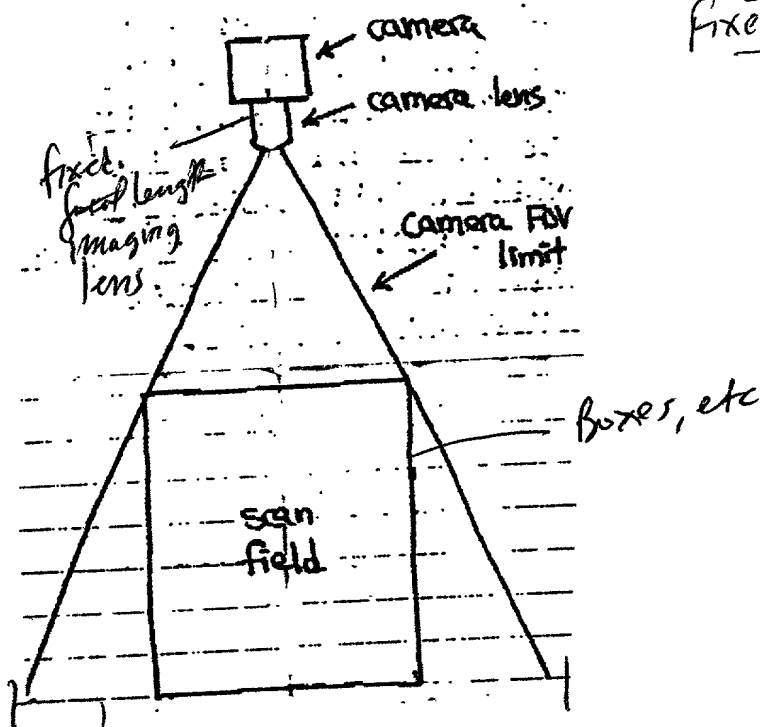 camera
Fixe
camera lens
fixed.
focal length
imaging
lens.
camera FOV
limit
Boxes, etc
scan
field